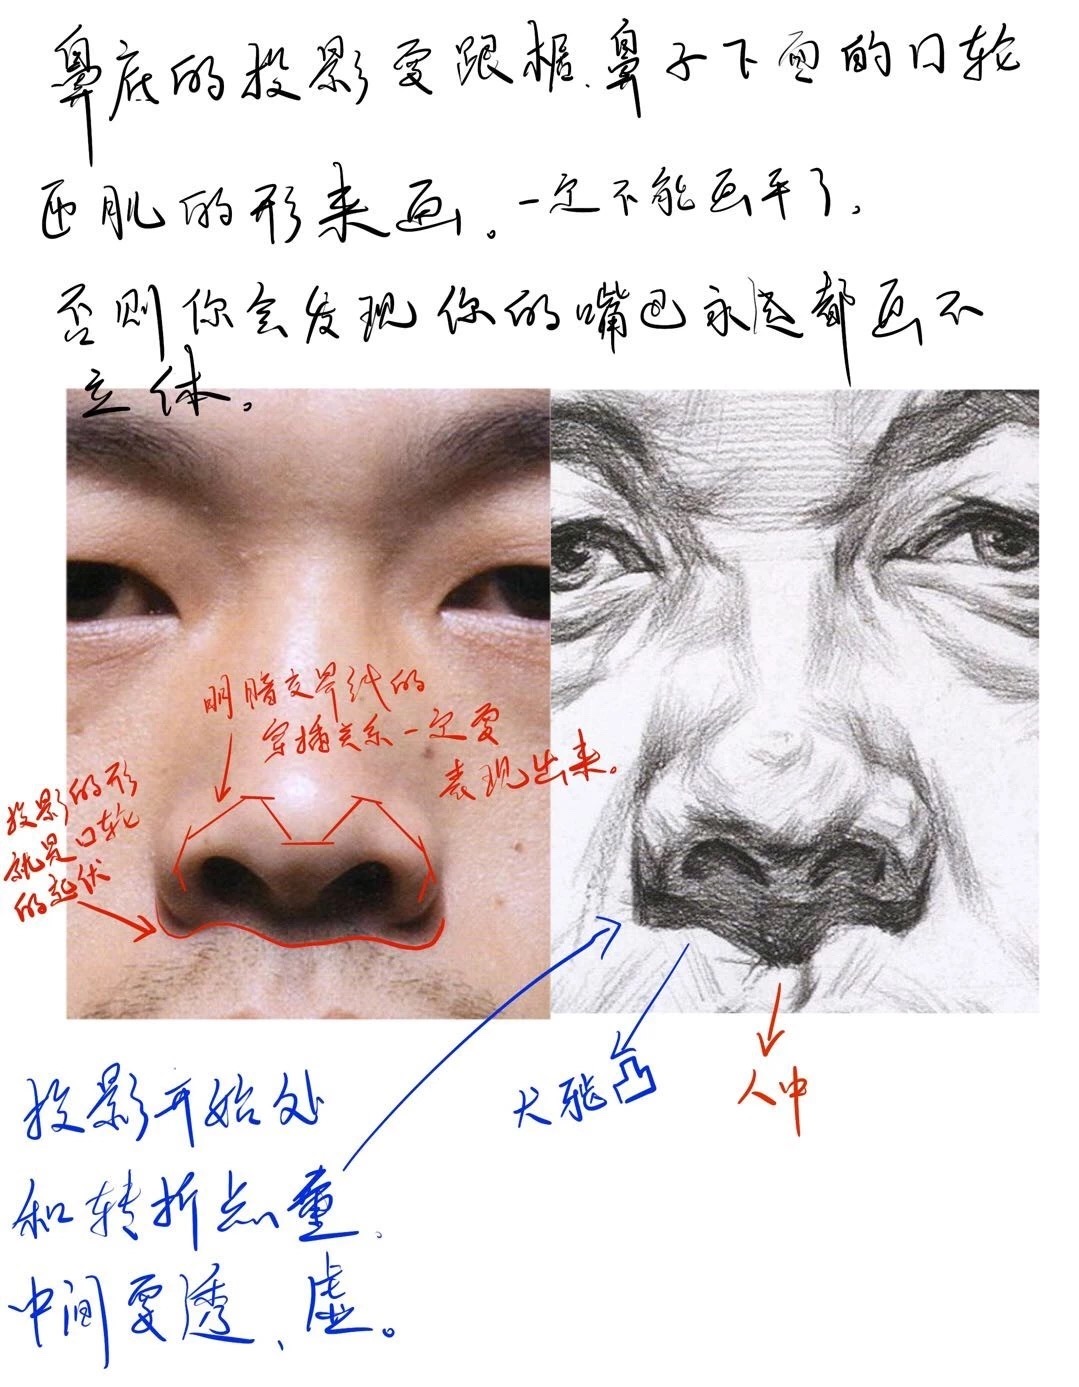 鼻底的投影要跟据鼻子下面的口轮
匝肌的形来画。一定不能画平了,
否则你会发现你的嘴巴永远都画不
立体。
明暗交界线的
穿插关系一定要
表现出来。
投影的形
就是口轮
的起伏
投影开始处
和转折点重、
中间要透、虚。
犬牙凸
人中